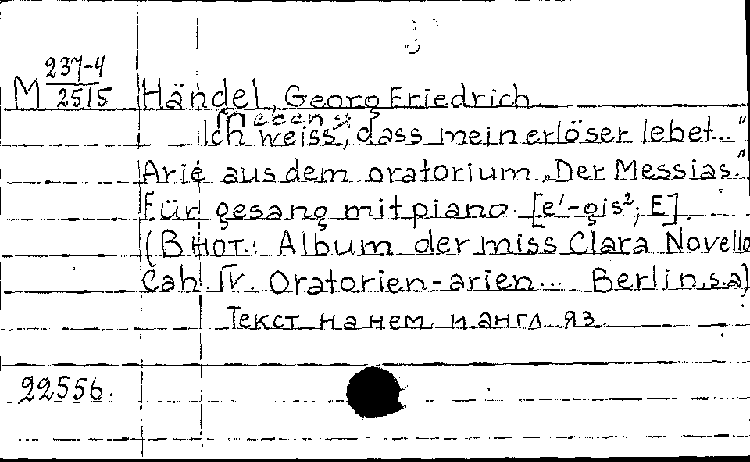 М 237-4
2515
Händel, Georg Friedrich
[Messias]
Ich weiss, dass mein erlöser lebet..."
Arie aus dem oratorium „Der Messias."
Für gesang mit piano. [e¹-gis²; E].
(В нот.: Album der miss Clara Novello
Cah. IV. Oratorien-arien... Berlin, s.a)
Текст на нем. и англ яз.
22556.